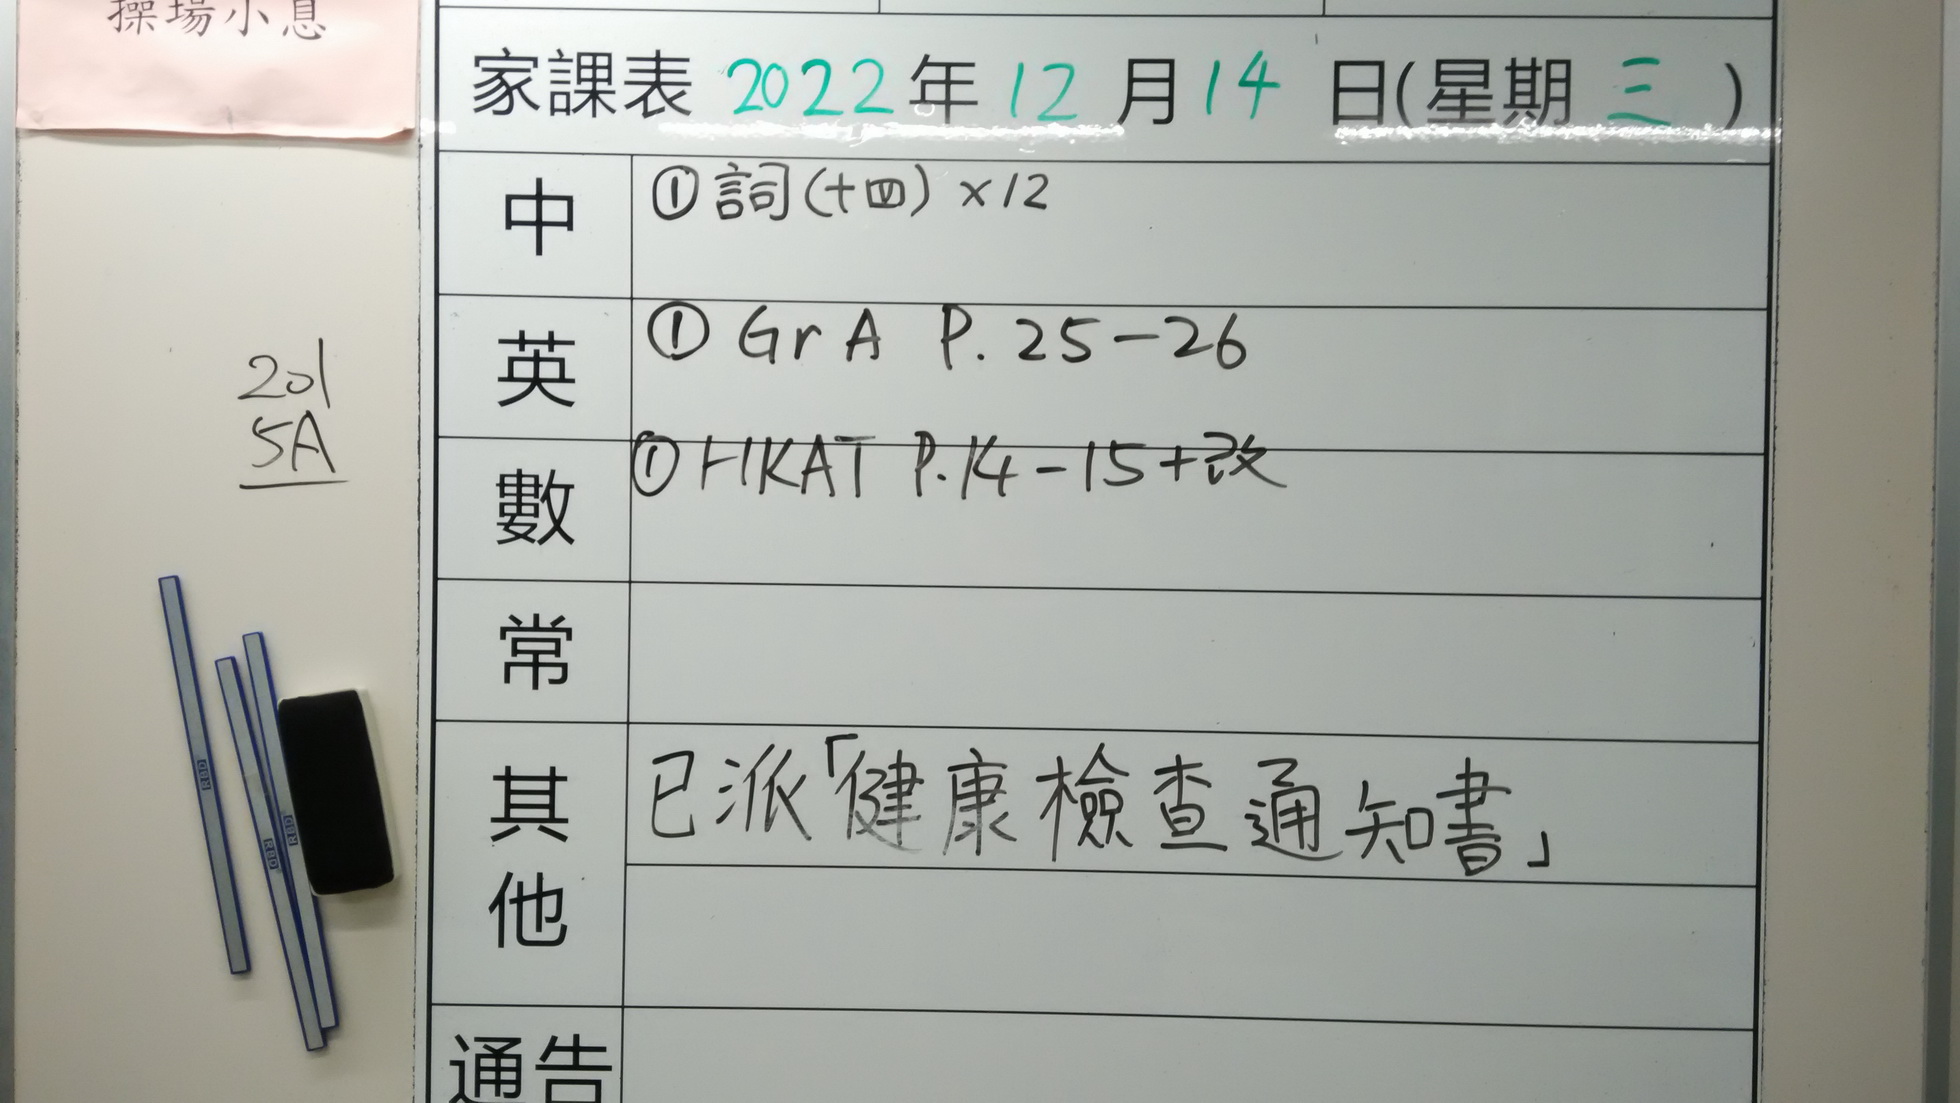 操場小息
家課表 2022年12月14日(星期三)
中 ①詞(十四)×12
英 ① GrA P. 25-26
數 ① HKAT P.14-15+改
常
其他 已派「健康檢查通知書」
通告
201
5A